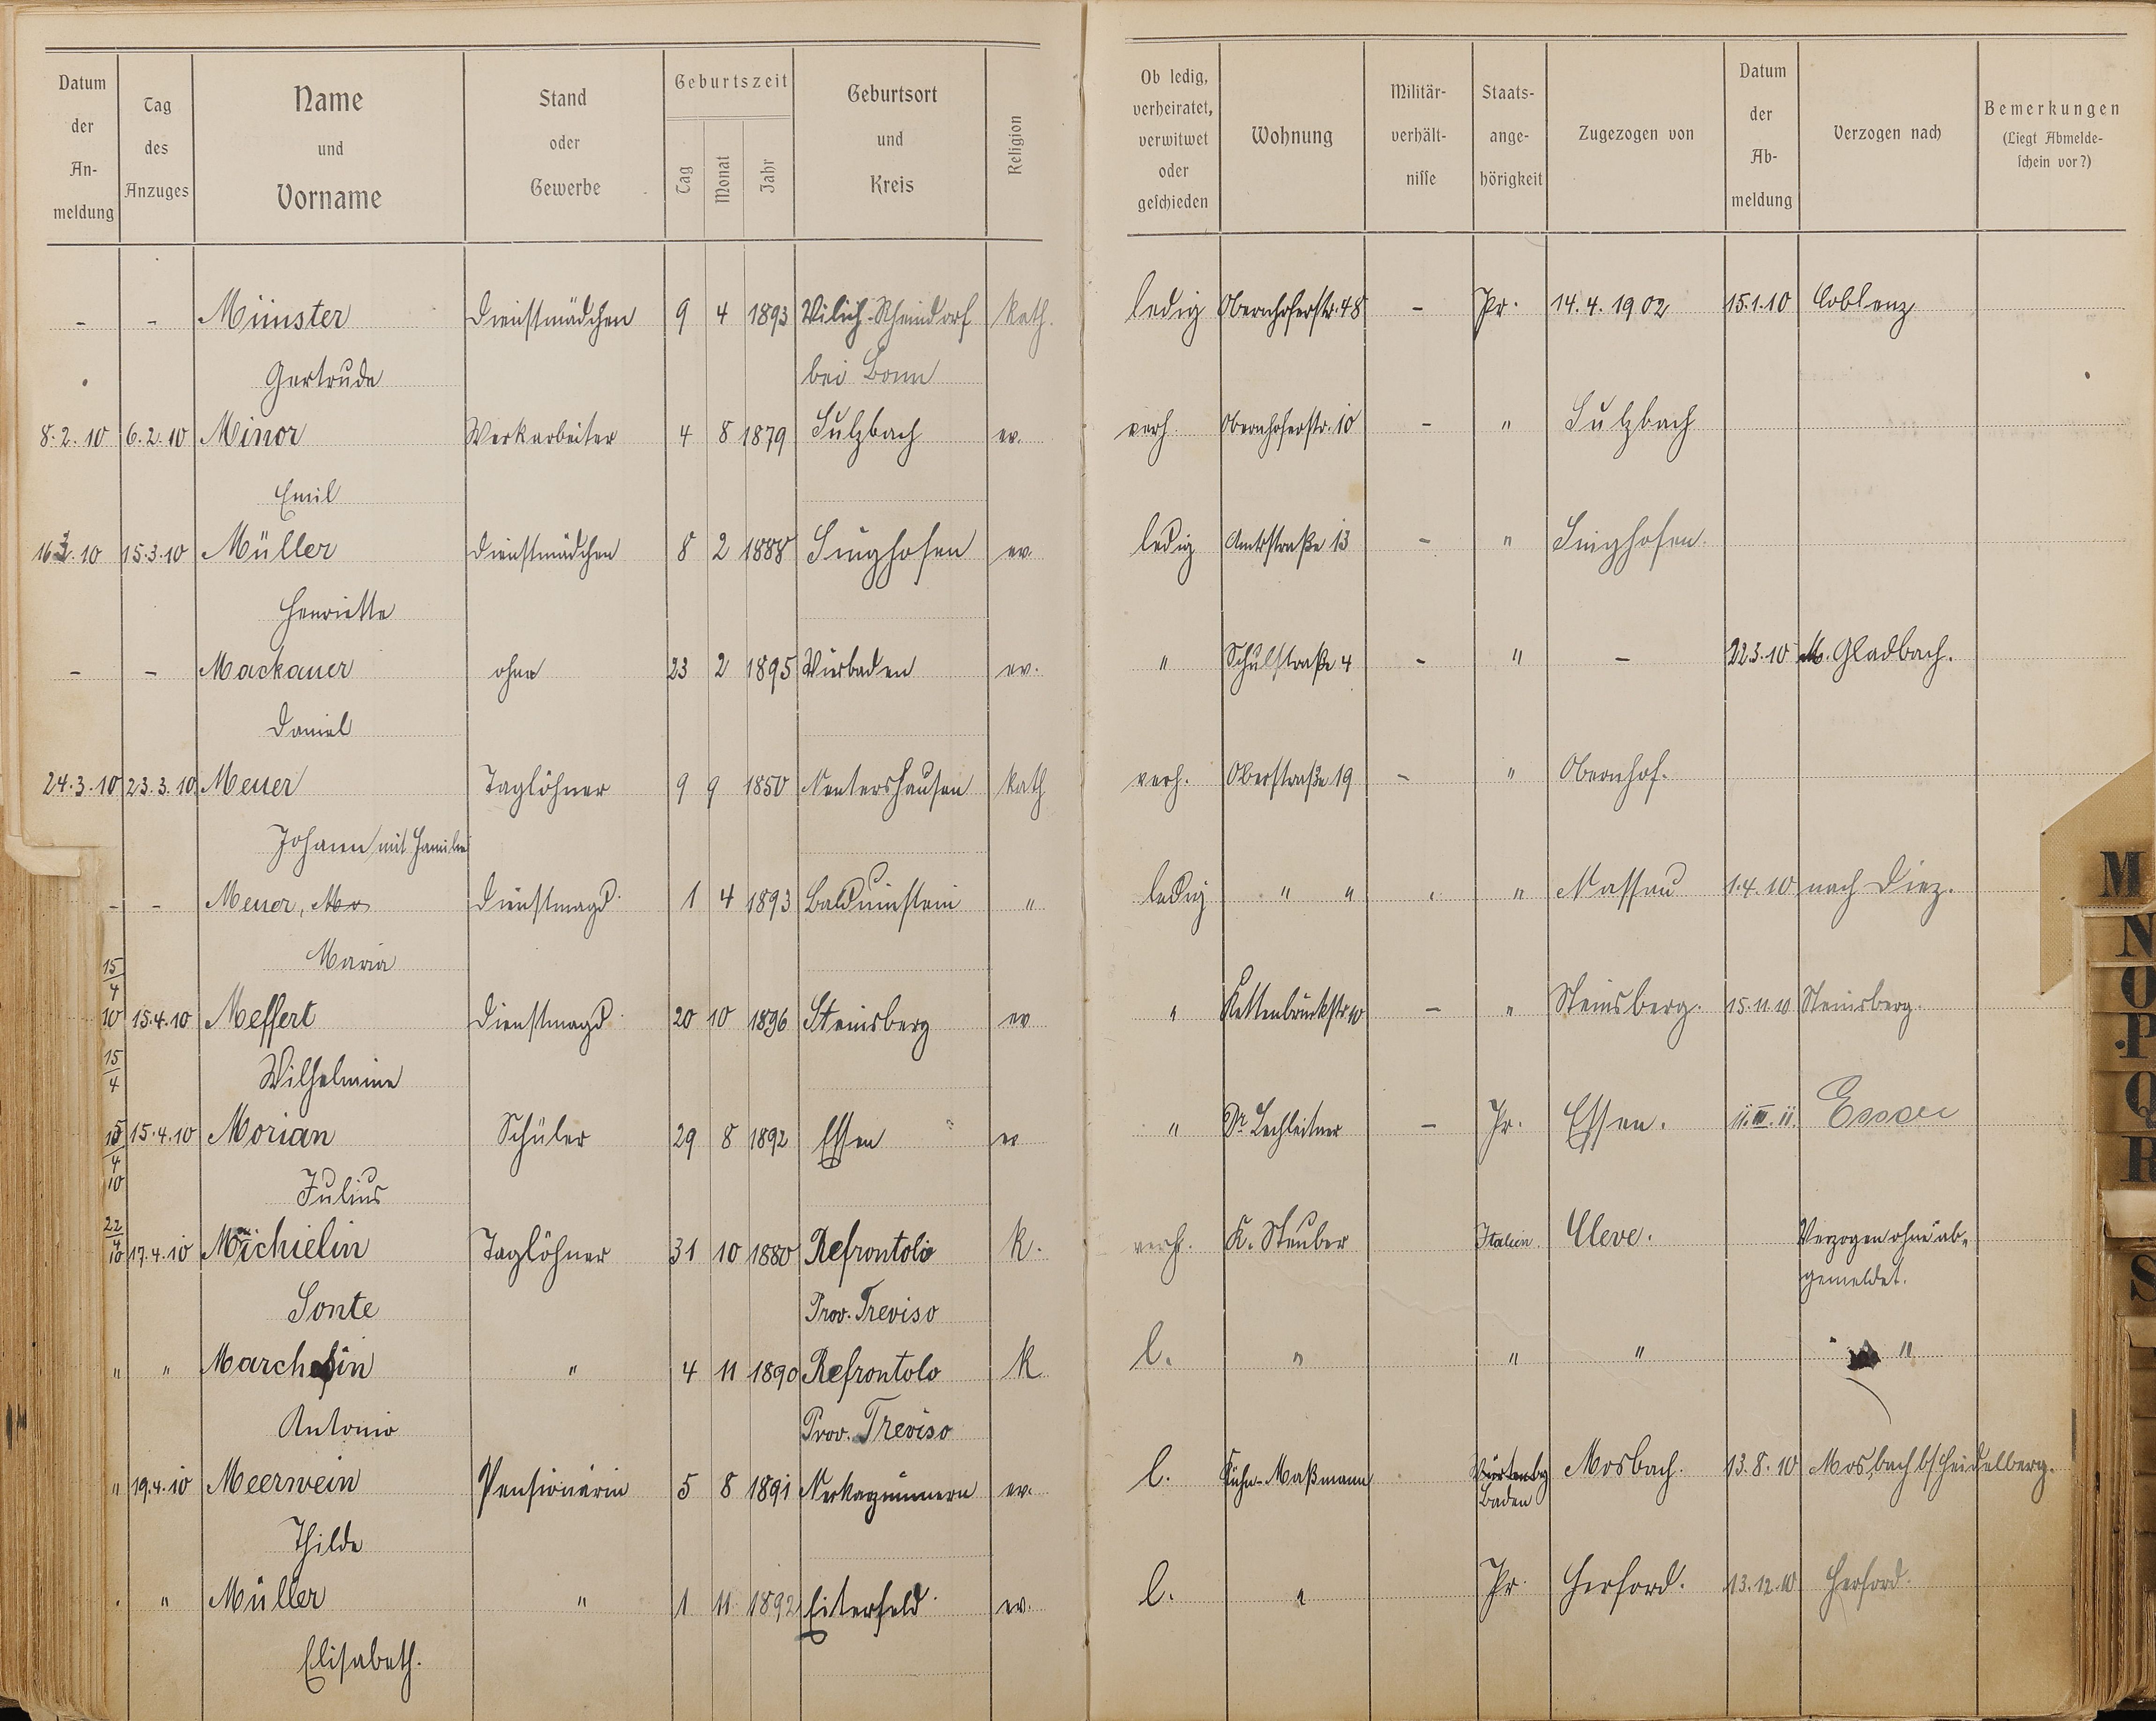 Datum der Anmeldung | Tag des Anzuges | Name und Vorname | Stand oder Gewerbe | Geburtszeit Tag Monat Jahr | Geburtsort und Kreis | Religion | Ob ledig, verheiratet, verwitwet oder geschieden | Wohnung | Militärverhältnisse | Staatsangehörigkeit | Zugezogen von | Datum der Abmeldung | Verzogen nach | Bemerkungen (Liegt Abmeldeschein vor?)
- - Münster Dienstmädchen 9 4 1893 Vilich-Rheindorf kath. ledig Obernhoferstr. 48 - Pr. 14.4.1902 15.1.10 Coblenz
Gertrude bei Bonn
8.2.10 6.2.10 Minor Werkarbeiter 4 8 1879 Sulzbach ev. verh. Obernhoferstr. 10 - " Sulzbach
Emil
16.3.10 15.3.10 Müller Dienstmädchen 8 2 1888 Singhofen ev. ledig Amtstraße 13 - " Singhofen.
Henriette
- - Mackauer ohne 23 2 1895 Wiesbaden ev. " Schulstraße 4 - " - 22.3.10 M. Gladbach.
Daniel
24.3.10 23.3.10 Meuer Taglöhner 9 9 1850 Nentershausen kath verh. Oberstraße 19 - " Obernhof.
Johann mit Familie
- - Meuer, Ma Dienstmagd 1 4 1893 Balduinstein " ledig " " " " Nassau 1.4.10 nach Diez.
Maria
15/4 10 15.4.10 Meffert Dienstmagd 20 10 1896 Steinsberg ev " Kettenbrückstr 10 - " Steinsberg. 15.11.10 Steinsberg.
15/4 Wilhelmine
15/4 10 15.4.10 Morian Schüler 29 8 1892 Essen ev " Dr. Lechleitner - Pr. Essen. 11.III.11. Essen
Julius
22/4 10 17.4.10 Michielin Taglöhner 31 10 1880 Refrontolo k. verh. K. Steuber Italien. Cleve. Verzogen ohne ab-
gemeldet.
Sonte Prov. Treviso
" " Marchesin " 4 11 1890 Refrontolo k. l. " " " "
Antonio Prov. Treviso
" 19.4.10 Meerwein Pensionärin 5 8 1891 Neckarzimmern ev. l. Kühn-Maßmann Würtenbg Mosbach. 13.8.10 Mosbach b/Heidelberg.
Baden
Thilde
" " Müller " 1 11 1892 Eiterfeld ev. l. " Pr. Herford. 13.12.10 Herford.
Elisabeth.
M
N
O
P
Q
R
S